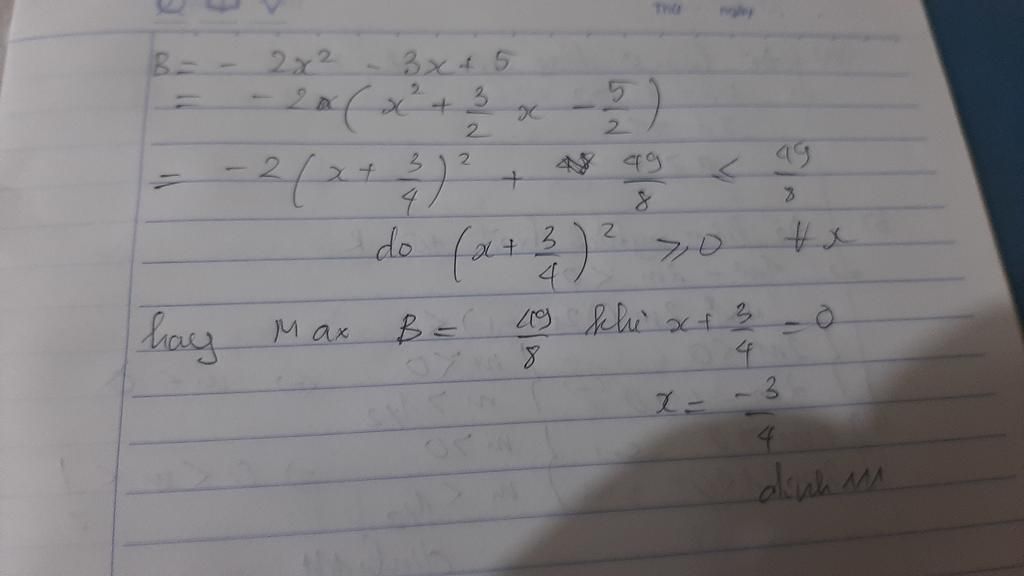 B = - 2x² - 3x + 5
= - 2 ( x² + 3/2 x - 5/2 )
= - 2 ( x + 3/4 )² + 49/8 ≤ 49/8
do ( x + 3/4 )² ≥ 0 ∀ x
hay Max B = 49/8 khi x + 3/4 = 0
x = -3/4